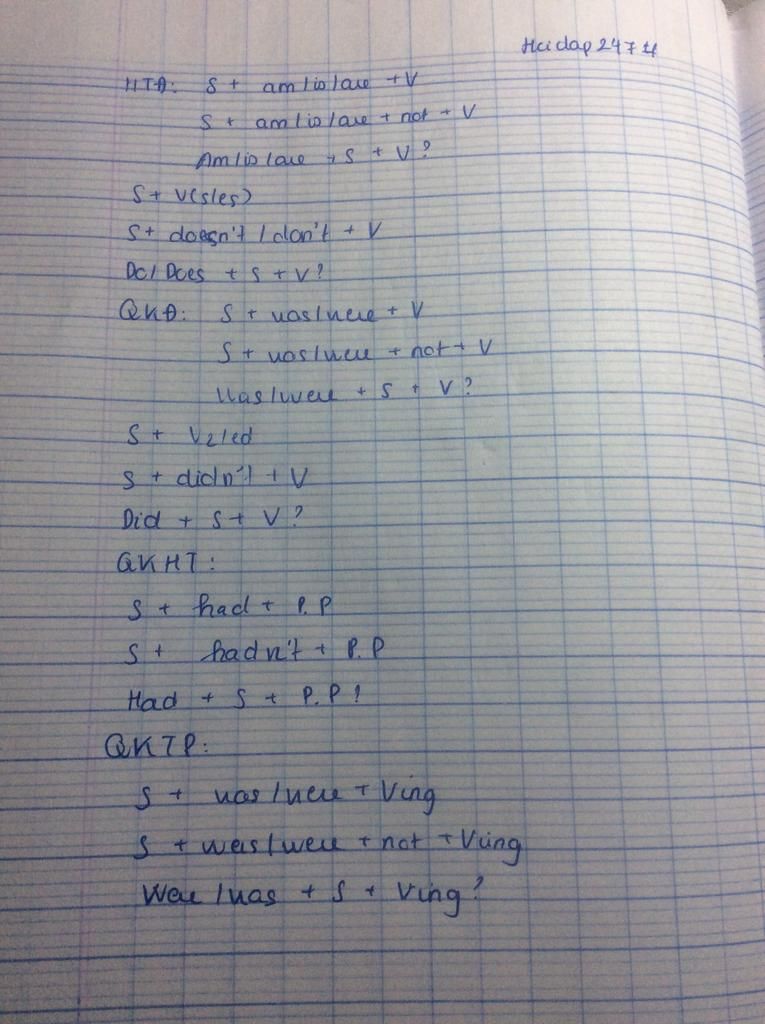 Hoidap247
HTĐ: S + am/is/are + V
S + am/is/are + not + V
Am/is/are + S + V?
S + V(s/es)
S + doesn't / don't + V
Do/Does + S + V?
QKĐ: S + was/were + V
S + was/were + not + V
Was/were + S + V?
S + V2/ed
S + didn't + V
Did + S + V?
QKHT:
S + had + P.P
S + hadn't + P.P
Had + S + P.P?
QKTP:
S + was/were + Ving
S + was/were + not + Ving
Were/was + S + Ving?